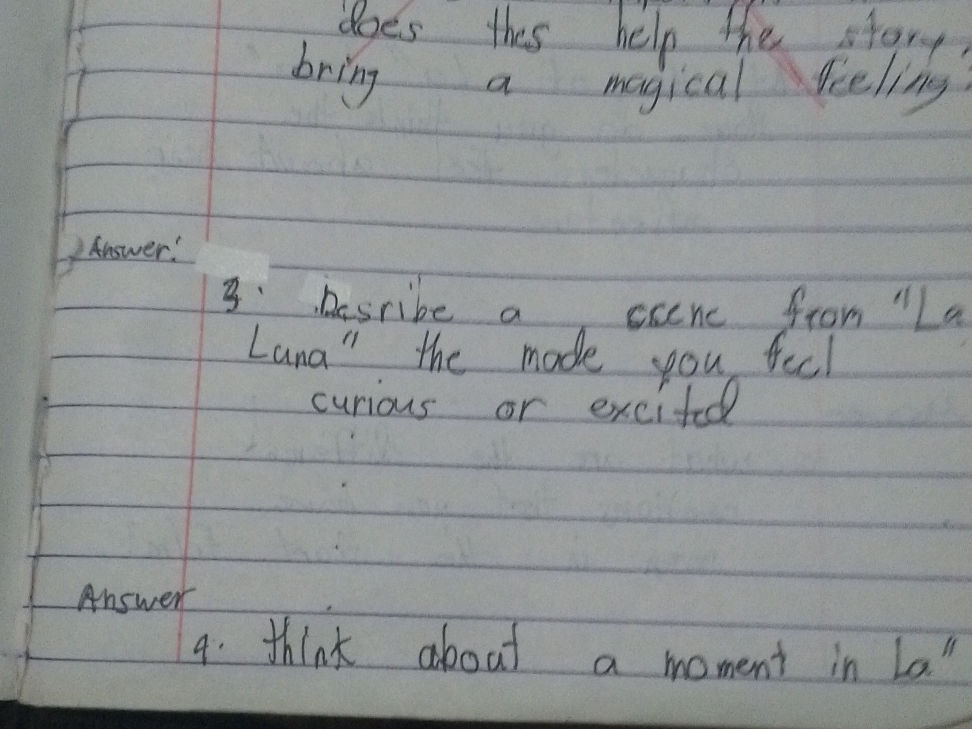 does thes help the story,
bring a magical feeling?
Answer:
3. Desribe a scene from "La
Luna" the made you feel
curious or excited
Answer
4. think about a moment in La"